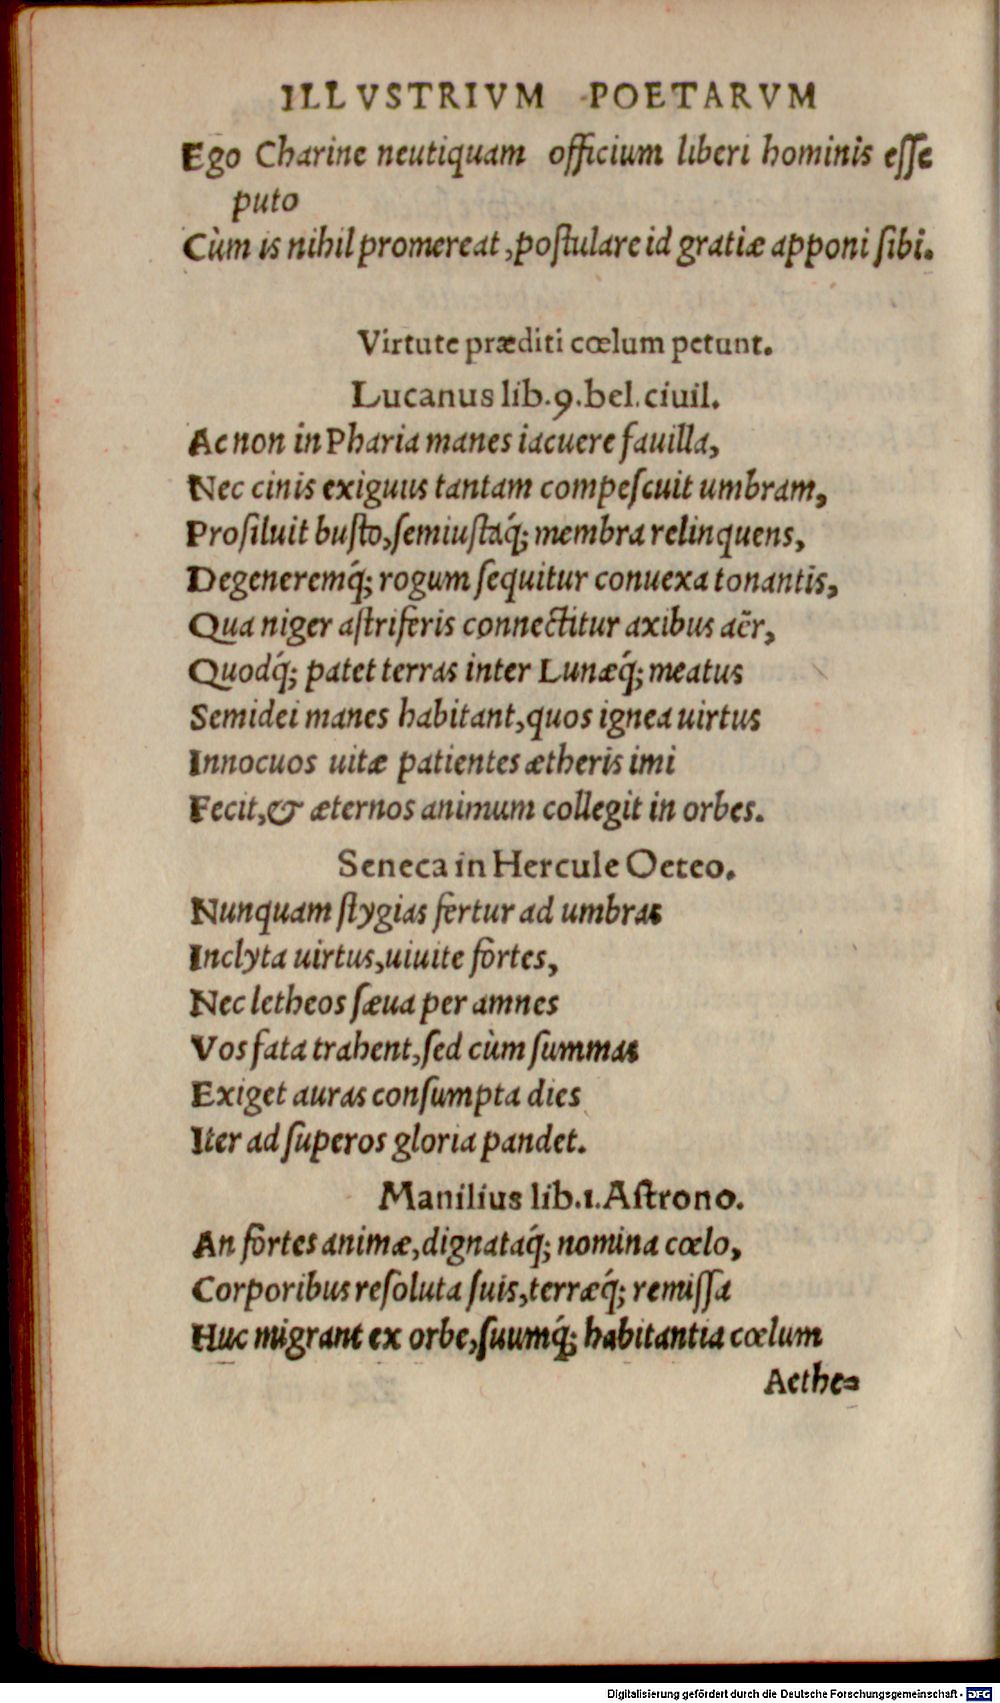 ILLVSTRIVM POETARVM
Ego Charine neutiquam officium liberi hominis esse
puto
Cùm is nihil promereat, postulare id gratiæ apponi sibi.
Virtute præditi cœlum petunt.
Lucanus lib. 9. bel. ciuil.
Ac non in Pharia manes iacuere fauilla,
Nec cinis exiguus tantam compescuit umbram,
Prosiluit busto, semiustaq́; membra relinquens,
Degeneremq́; rogum sequitur conuexa tonantis,
Qua niger astriferis connectitur axibus aër,
Quodq́; patet terras inter Lunæq́; meatus
Semidei manes habitant, quos ignea uirtus
Innocuos uitæ patientes ætheris imi
Fecit, & æternos animum collegit in orbes.
Seneca in Hercule Oeteo.
Nunquam stygias fertur ad umbras
Inclyta uirtus, uiuite fortes,
Nec letheos sæua per amnes
Vos fata trahent, sed cùm summas
Exiget auras consumpta dies
Iter ad superos gloria pandet.
Manilius lib. 1. Astrono.
An fortes animæ, dignataq́; nomina cœlo,
Corporibus resoluta suis, terræq́; remissa
Huc migrant ex orbe, suumq́; habitantia cœlum
Aethe-
Digitalisierung gefördert durch die Deutsche Forschungsgemeinschaft - DFG